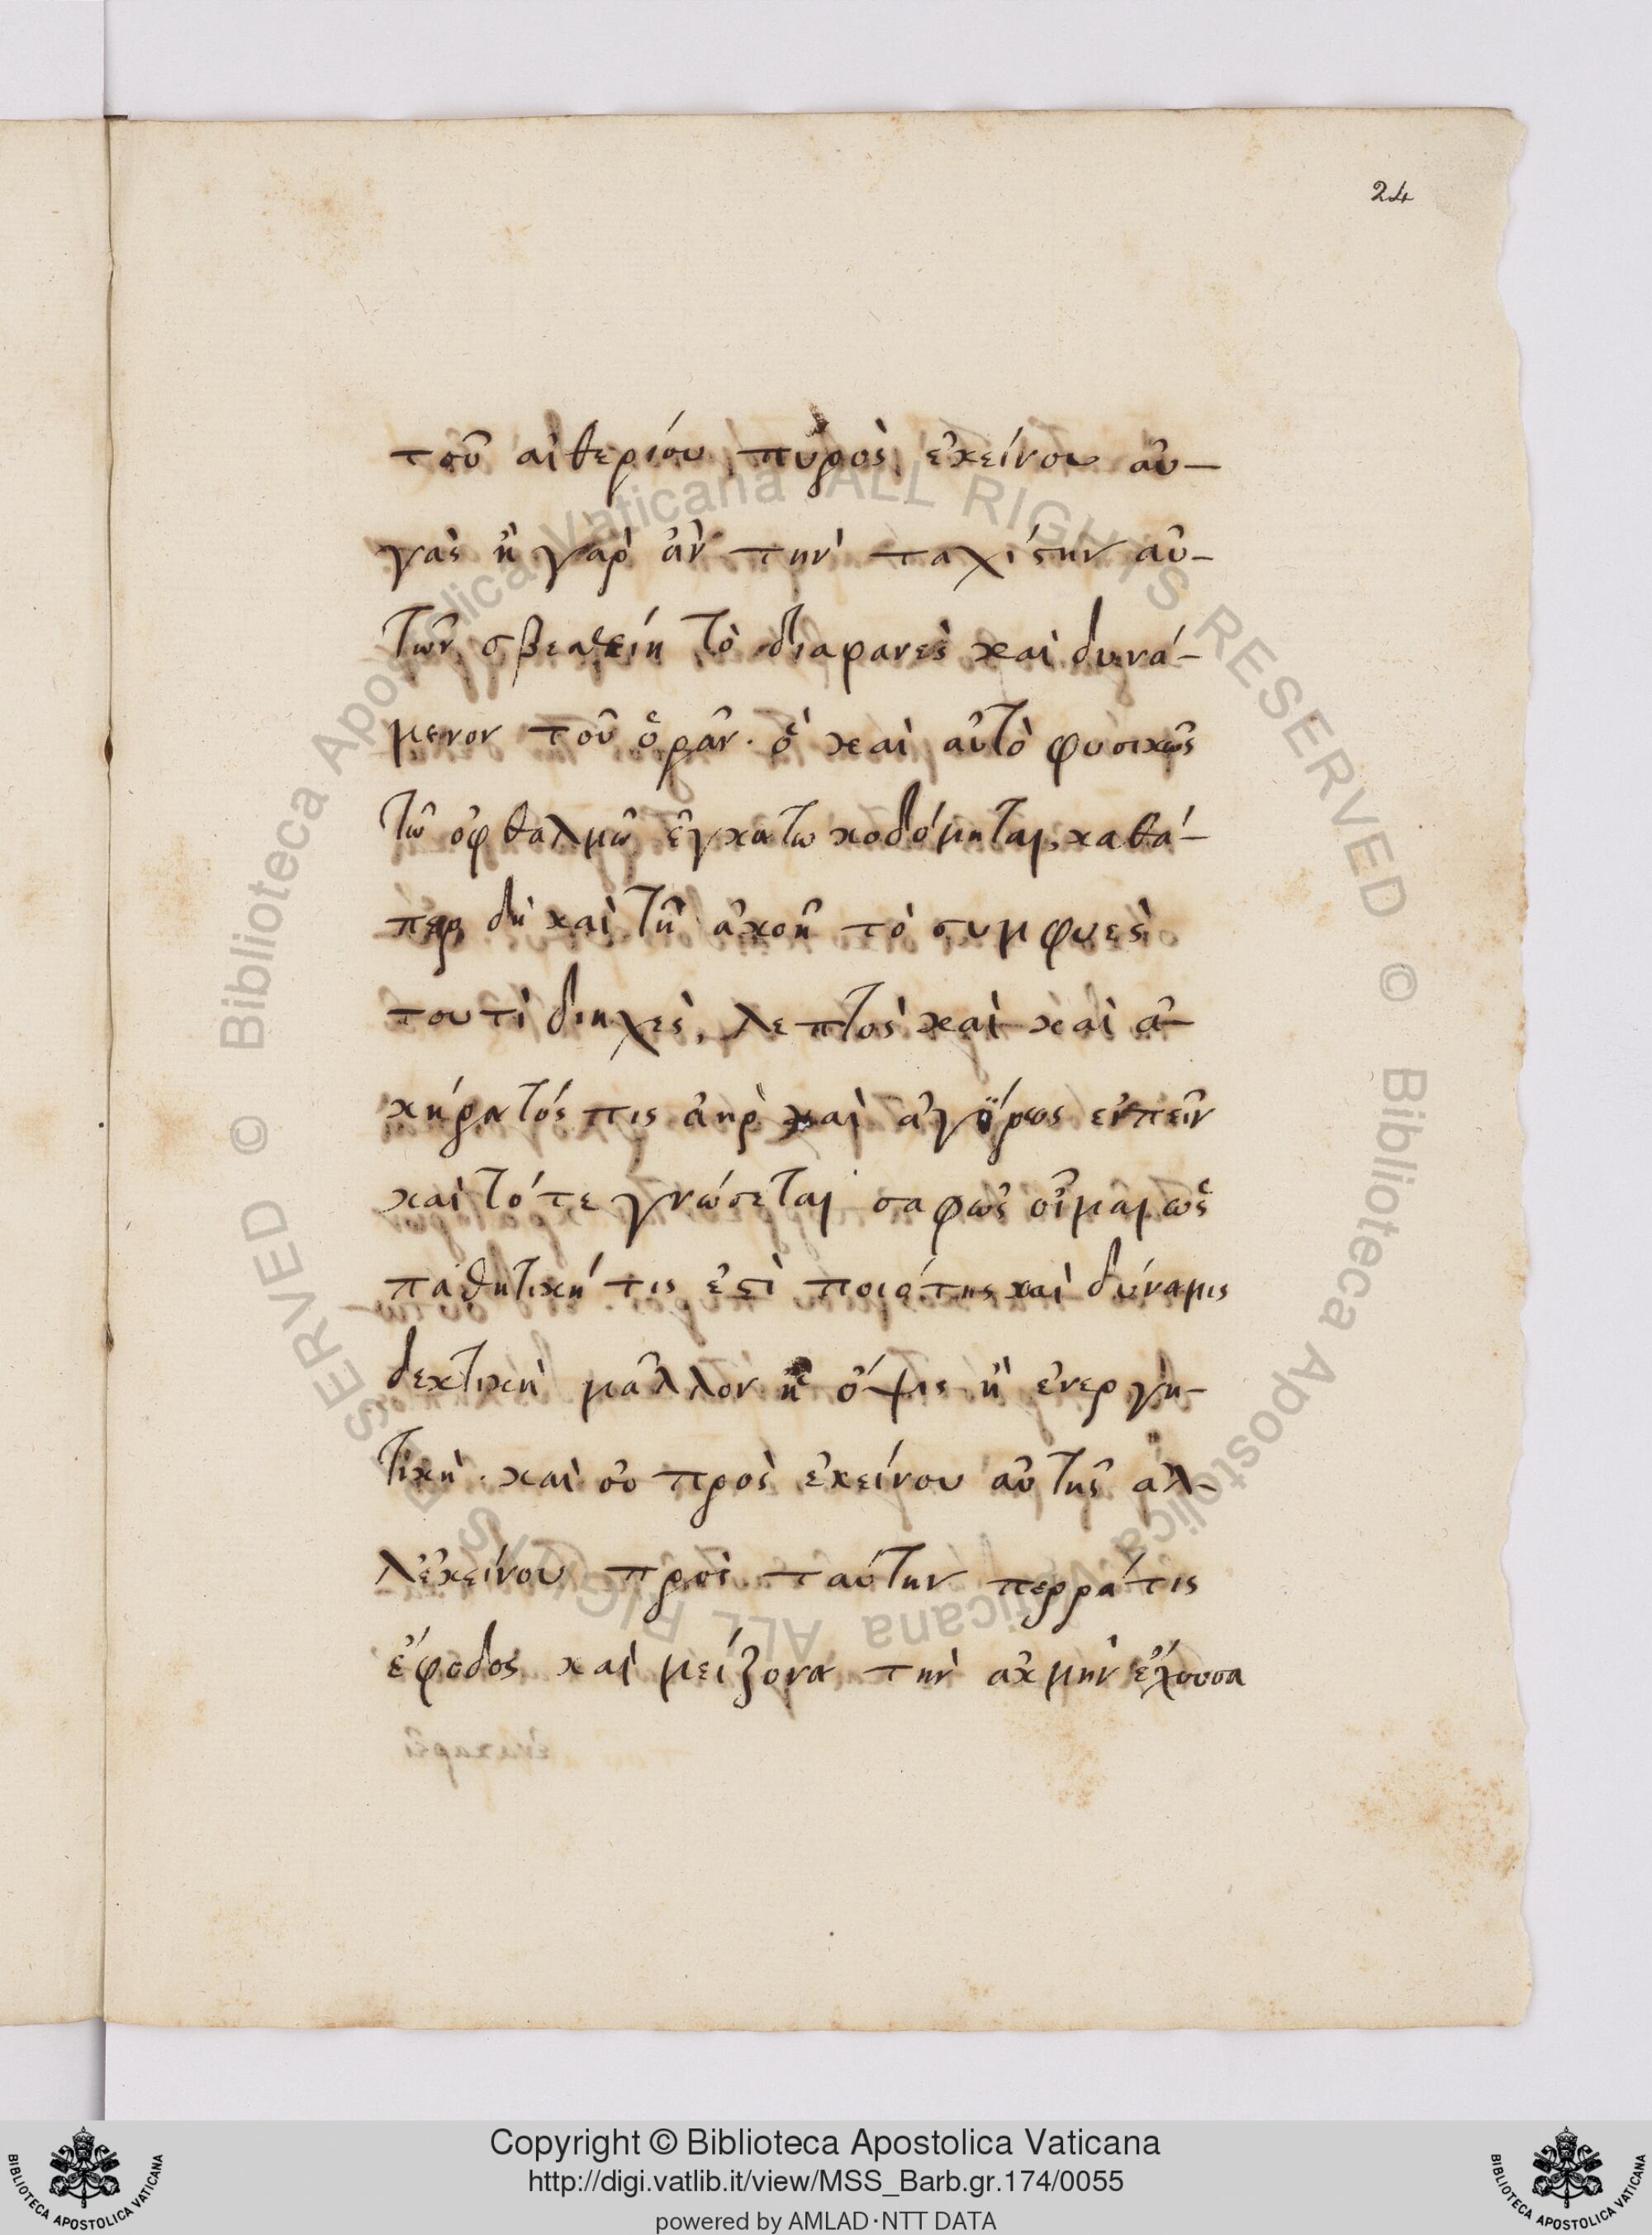 24
τοῦ αἰθερίου πυρὸς ἐκείνου αὐ-
γὰς ἢ γὰρ ἂν τὴν ταχίστην αὐ-
τῶν σβεσθείη τὸ διαφανὲς καὶ δυνά-
μενον τοῦ ὁρᾶν· ὃ καὶ αὐτὸ φυσικῶς
τῶ ὀφθαλμῶ ἐγκατωκοδόμηται, καθά-
περ δὴ καὶ τῆ ἀκοῆ τὸ συμφυὲς
τουτὶ διηχὲς, λεπτὸς καὶ καὶ ἀ-
κήρατός τις ἀὴρ καὶ ἀγήρως εἰπεῖν
καὶ τότε γνώσεται σαφῶς οἶμαι ὡς
παθητική τις ἐστὶ ποιότης καὶ δύναμις
δεκτικὴ μᾶλλον ἡ ὄψις ἢ ἐνεργη-
τικὴ. καὶ οὐ πρὸς ἐκείνου αὐτῆς ἀλ-
λ' ἐκείνου πρὸς ταύτην περρά τις
ἔφοδος καὶ μείζονα τὴν ἀκμὴν ἔχουσα
Copyright © Biblioteca Apostolica Vaticana
http://digi.vatlib.it/view/MSS_Barb.gr.174/0055
powered by AMLAD·NTT DATA
BIBLIOTECA APOSTOLICA VATICANA
BIBLIOTECA APOSTOLICA VATICANA
© Biblioteca Apostolica Vaticana ALL RIGHTS RESERVED
© Biblioteca Apostolica Vaticana ALL RIGHTS RESERVED